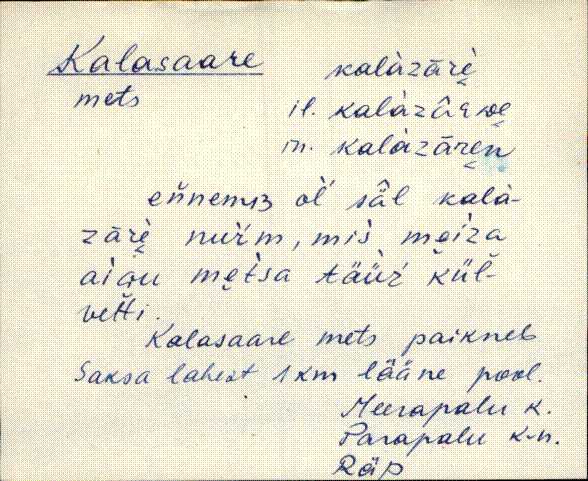 Kalasaare kalàzārè̮
mets il. kalàzârᴇwe̮
in. kalàzāre̮n
eňnemʙ oĺ sâl kalà-
zārè̮ nuŕm, mis me̮iza
aiɢu me̮tsa täüź küĺ-
vetti.
Kalasaare mets paikneb
Saksa lahest 1 km lääne pool.
Meerapalu k.
Parapalu k.n.
Räp